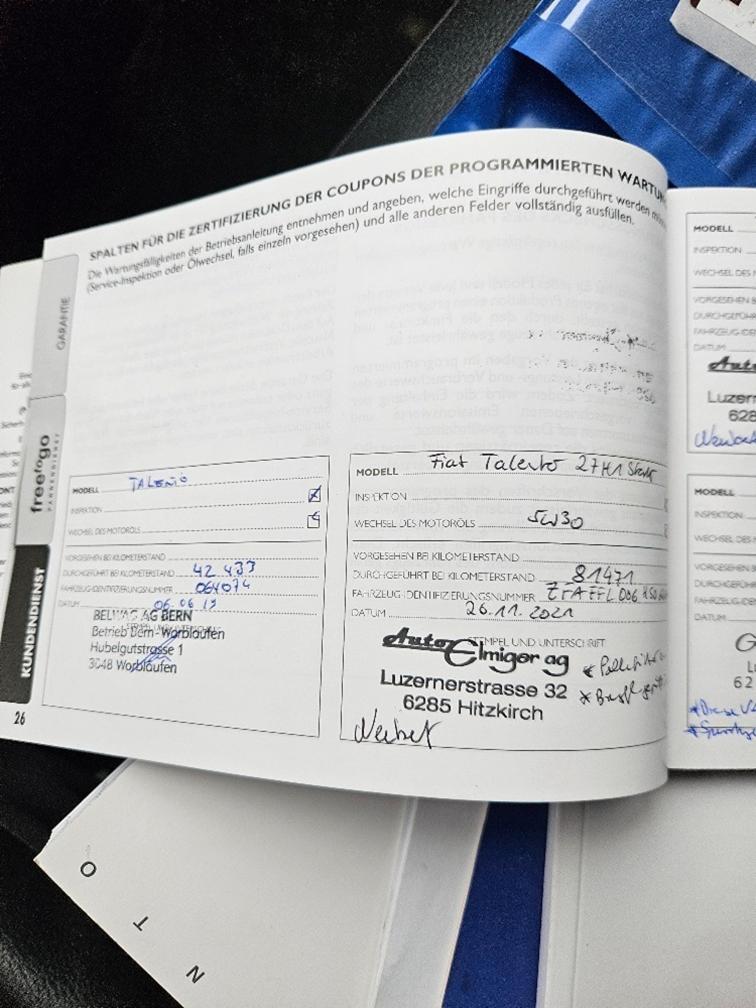 SPALTEN FÜR DIE ZERTIFIZIERUNG DER COUPONS DER PROGRAMMIERTEN WARTUN
Die Wartungsfälligkeiten der Betriebsanleitung entnehmen und angeben, welche Eingriffe durchgeführt werden
(Service-Inspektion oder Ölwechsel, falls einzeln vorgesehen) und alle anderen Felder vollständig ausfüllen.
GARANTIE
freetogo
PANNENDIENST
KUNDENDIENST
26
MODELL TALENTO
INSPEKTION
WECHSEL DES MOTORÖLS
VORGESEHEN BEI KILOMETERSTAND
DURCHGEFÜHRT BEI KILOMETERSTAND 42 433
FAHRZEUGIDENTIFIZIERUNGSNUMMER 064074
DATUM 06.06.19
BELWAG AG BERN
Betrieb Bern - Worblaufen
Hubelgutstrasse 1
3048 Worblaufen
MODELL Fiat Talento
INSPEKTION
WECHSEL DES MOTORÖLS 5W30
VORGESEHEN BEI KILOMETERSTAND
DURCHGEFÜHRT BEI KILOMETERSTAND 81471
FAHRZEUGIDENTIFIZIERUNGSNUMMER
DATUM 26.11.2021
STEMPEL UND UNTERSCHRIFT
Auto Elmiger ag
Luzernerstrasse 32
6285 Hitzkirch
MODELL
INSPEKTION
WECHSEL DES M
VORGESEHEN B
DURCHGEFÜHR
FAHRZEUG-IDE
DATUM
Auto
Luzer
628
MODELL
INSPEKTION
WECHSEL DES M
VORGESEHEN B
DURCHGEFÜHR
FAHRZEUG-IDE
DATUM
G
L
62
N T O